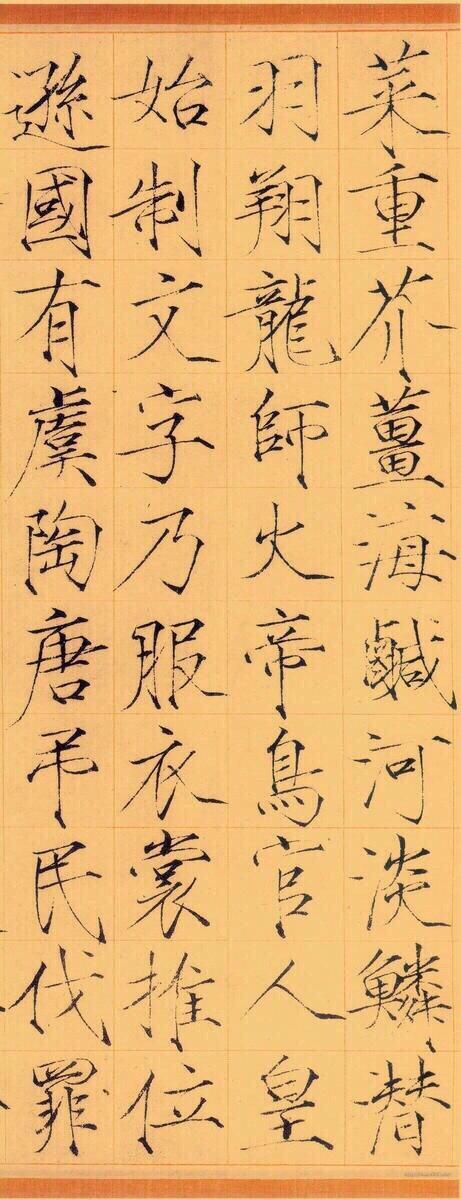 菜重芥薑海鹹河淡鱗潛
羽翔龍師火帝鳥官人皇
始制文字乃服衣裳推位
遜國有虞陶唐弔民伐罪